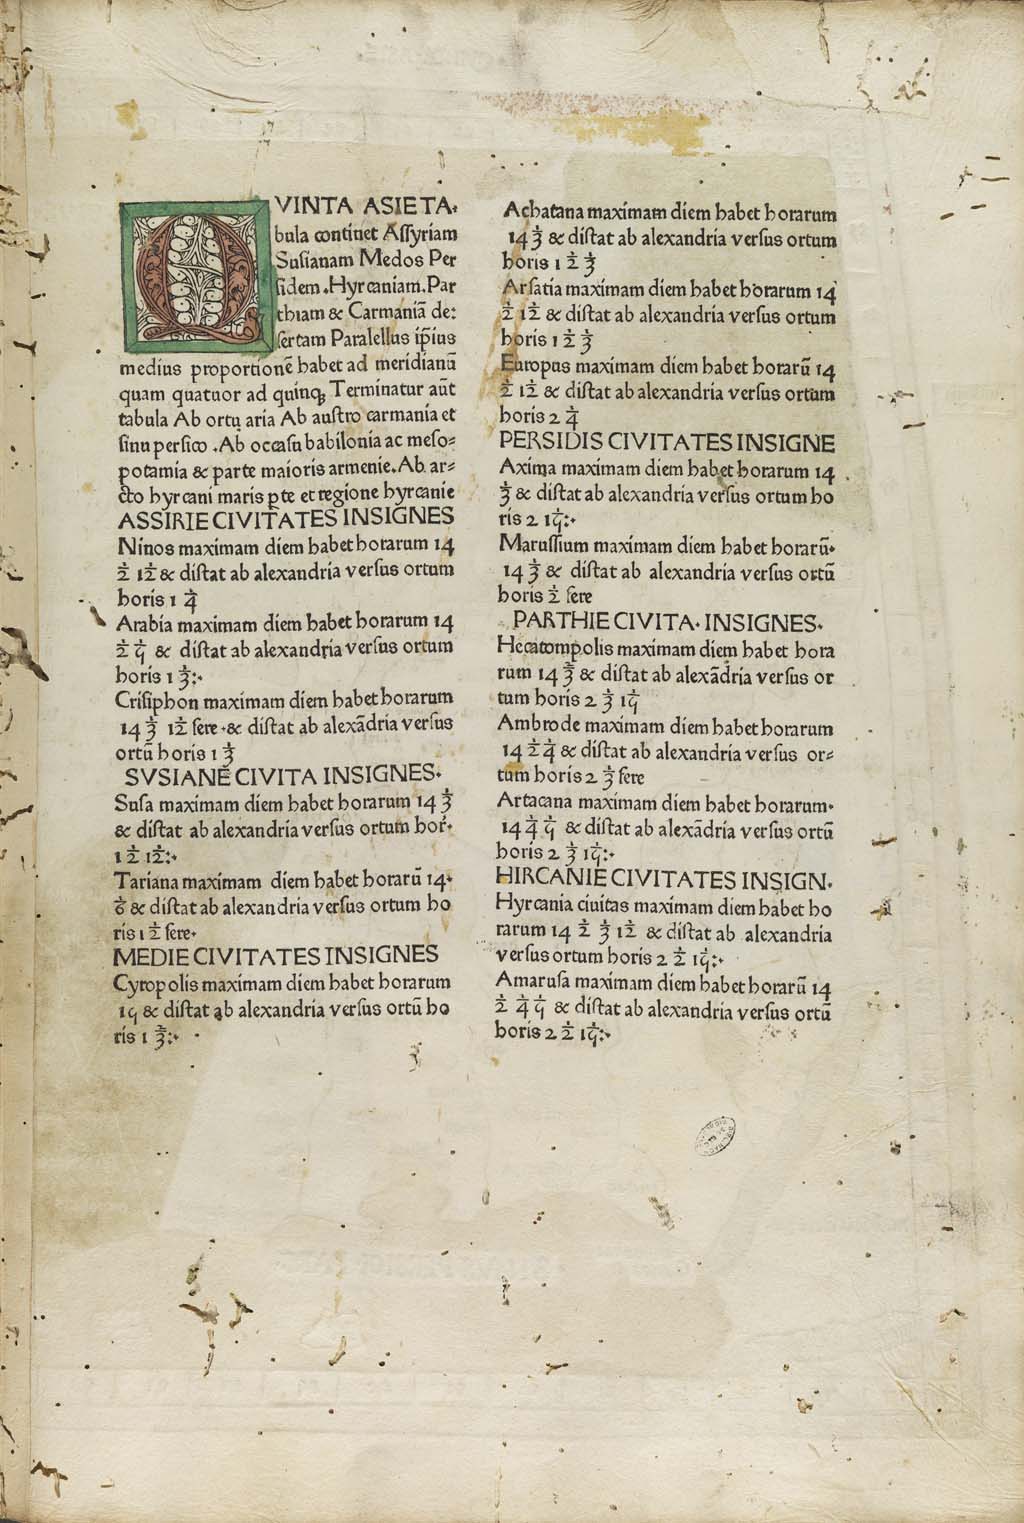 QVINTA ASIE TA·
bula continet Assyriam
Susianam Medos Per
sidem .Hyrcaniam.Par
thiam & Carmaniā de:
sertam Paralellus ip̄ius
medius proportionē habet ad meridianū
quam quatuor ad quinqꝫ Terminatur aūt
tabula Ab ortu aria Ab austro carmania et
sinu persico .Ab occasu babilonia ac meso⸗
potamia & parte maioris armenie.Ab ar⸗
cto hyrcani maris ꝑte et regione hyrcanie
ASSIRIE CIVITATES INSIGNES
Ninos maximam diem habet horarum 14
1/2 12 & distat ab alexandria versus ortum
horis 1 1/4
Arabia maximam diem habet horarum 14
1/2 1/9 & distat ab alexandria versus ortum
horis 1 1/3:·
Crisiphon maximam diem habet horarum
14 1/3 12 fere ·& distat ab alexādria versus
ortū horis 1 1/3
SVSIANE CIVITA INSIGNES·
Susa maximam diem habet horarum 14 1/3
& distat ab alexandria versus ortum hor·
1 1/2 12:·
Tariana maximam diem habet horarū 14·
1/6 & distat ab alexandria versus ortum ho
ris 1 1/2 fere·
MEDIE CIVITATES INSIGNES
Cyropolis maximam diem habet horarum
19 & distat ab alexandria versus ortū ho
ris 1 2/3:·
Achatana maximam diem habet horarum
14 2/3 & distat ab alexandria versus ortum
horis 1 1/2 1/3
Arsatia maximam diem habet horarum 14
1/2 12 & distat ab alexandria versus ortum
horis 1 1/2 1/3
Europus maximam diem habet horarū 14
1/2 12 & distat ab alexandria versus ortum
horis 2 1/4
PERSIDIS CIVITATES INSIGNE
Axima maximam diem habet horarum 14
1/3 & distat ab alexandria versus ortum ho
ris 2 19:·
Marussium maximam diem habet horarū·
14 1/3 & distat ab alexandria versus ortū
horis 1/2 fere
PARTHIE CIVITA· INSIGNES·
Hecatompolis maximam diem habet hora
rum 14 2/3 & distat ab alexādria versus or
tum horis 2 1/3 19
Ambrode maximam diem habet horarum
14 1/2 1/4 & distat ab alexandria versus or⸗
tum horis 2 1/3 fere
Artacana maximam diem habet horarum·
14 1/4 1/9 & distat ab alexādria versus ortū
horis 2 1/3 19:·
HIRCANIE CIVITATES INSIGN·
Hyrcania ciuitas maximam diem habet ho
rarum 14 1/2 1/3 12 & distat ab alexandria
versus ortum horis 2 1/2 19:·
Amarusa maximam diem habet horarū 14
1/2 1/4 1/9 & distat ab alexandria versus ortū
horis 2 1/2 19:·